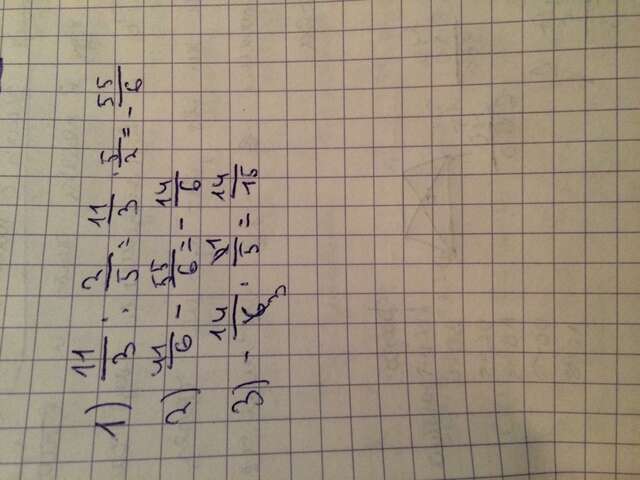 1) 11/3 : 2/5 = 11/3 · 5/2 = - 55/6
2) 41/6 - 55/6 = - 14/6
3) - 14/3 · 1/5 = 14/15